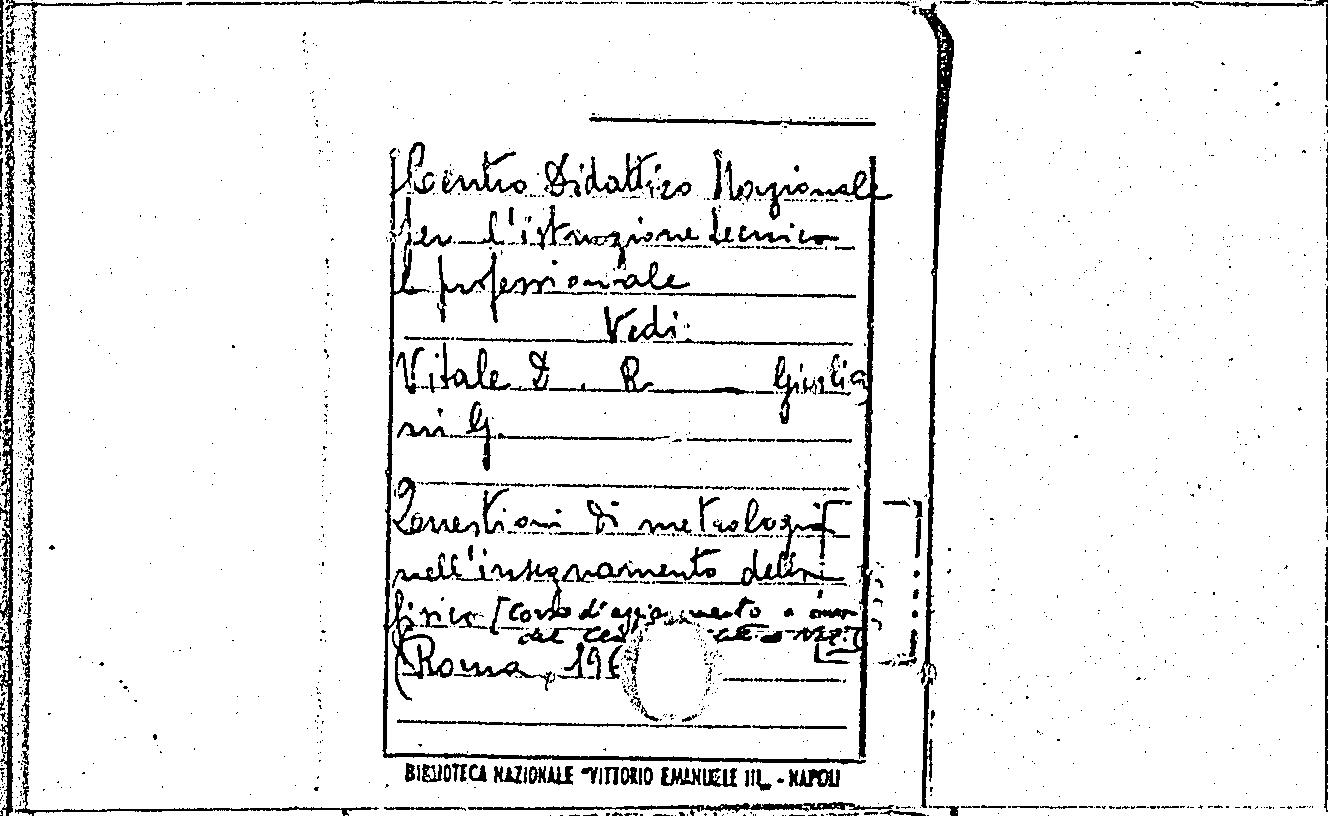 Centro Didattico Nazionale
per l'istruzione tecnica
e professionale
Vedi:
Vitale D. R. — Giulia
ni G.
Questioni di metrologia
nell'insegnamento della
fisica [Corso d'aggiornamento a cura
del
(Roma, 196
BIBLIOTECA NAZIONALE "VITTORIO EMANUELE III„ - NAPOLI